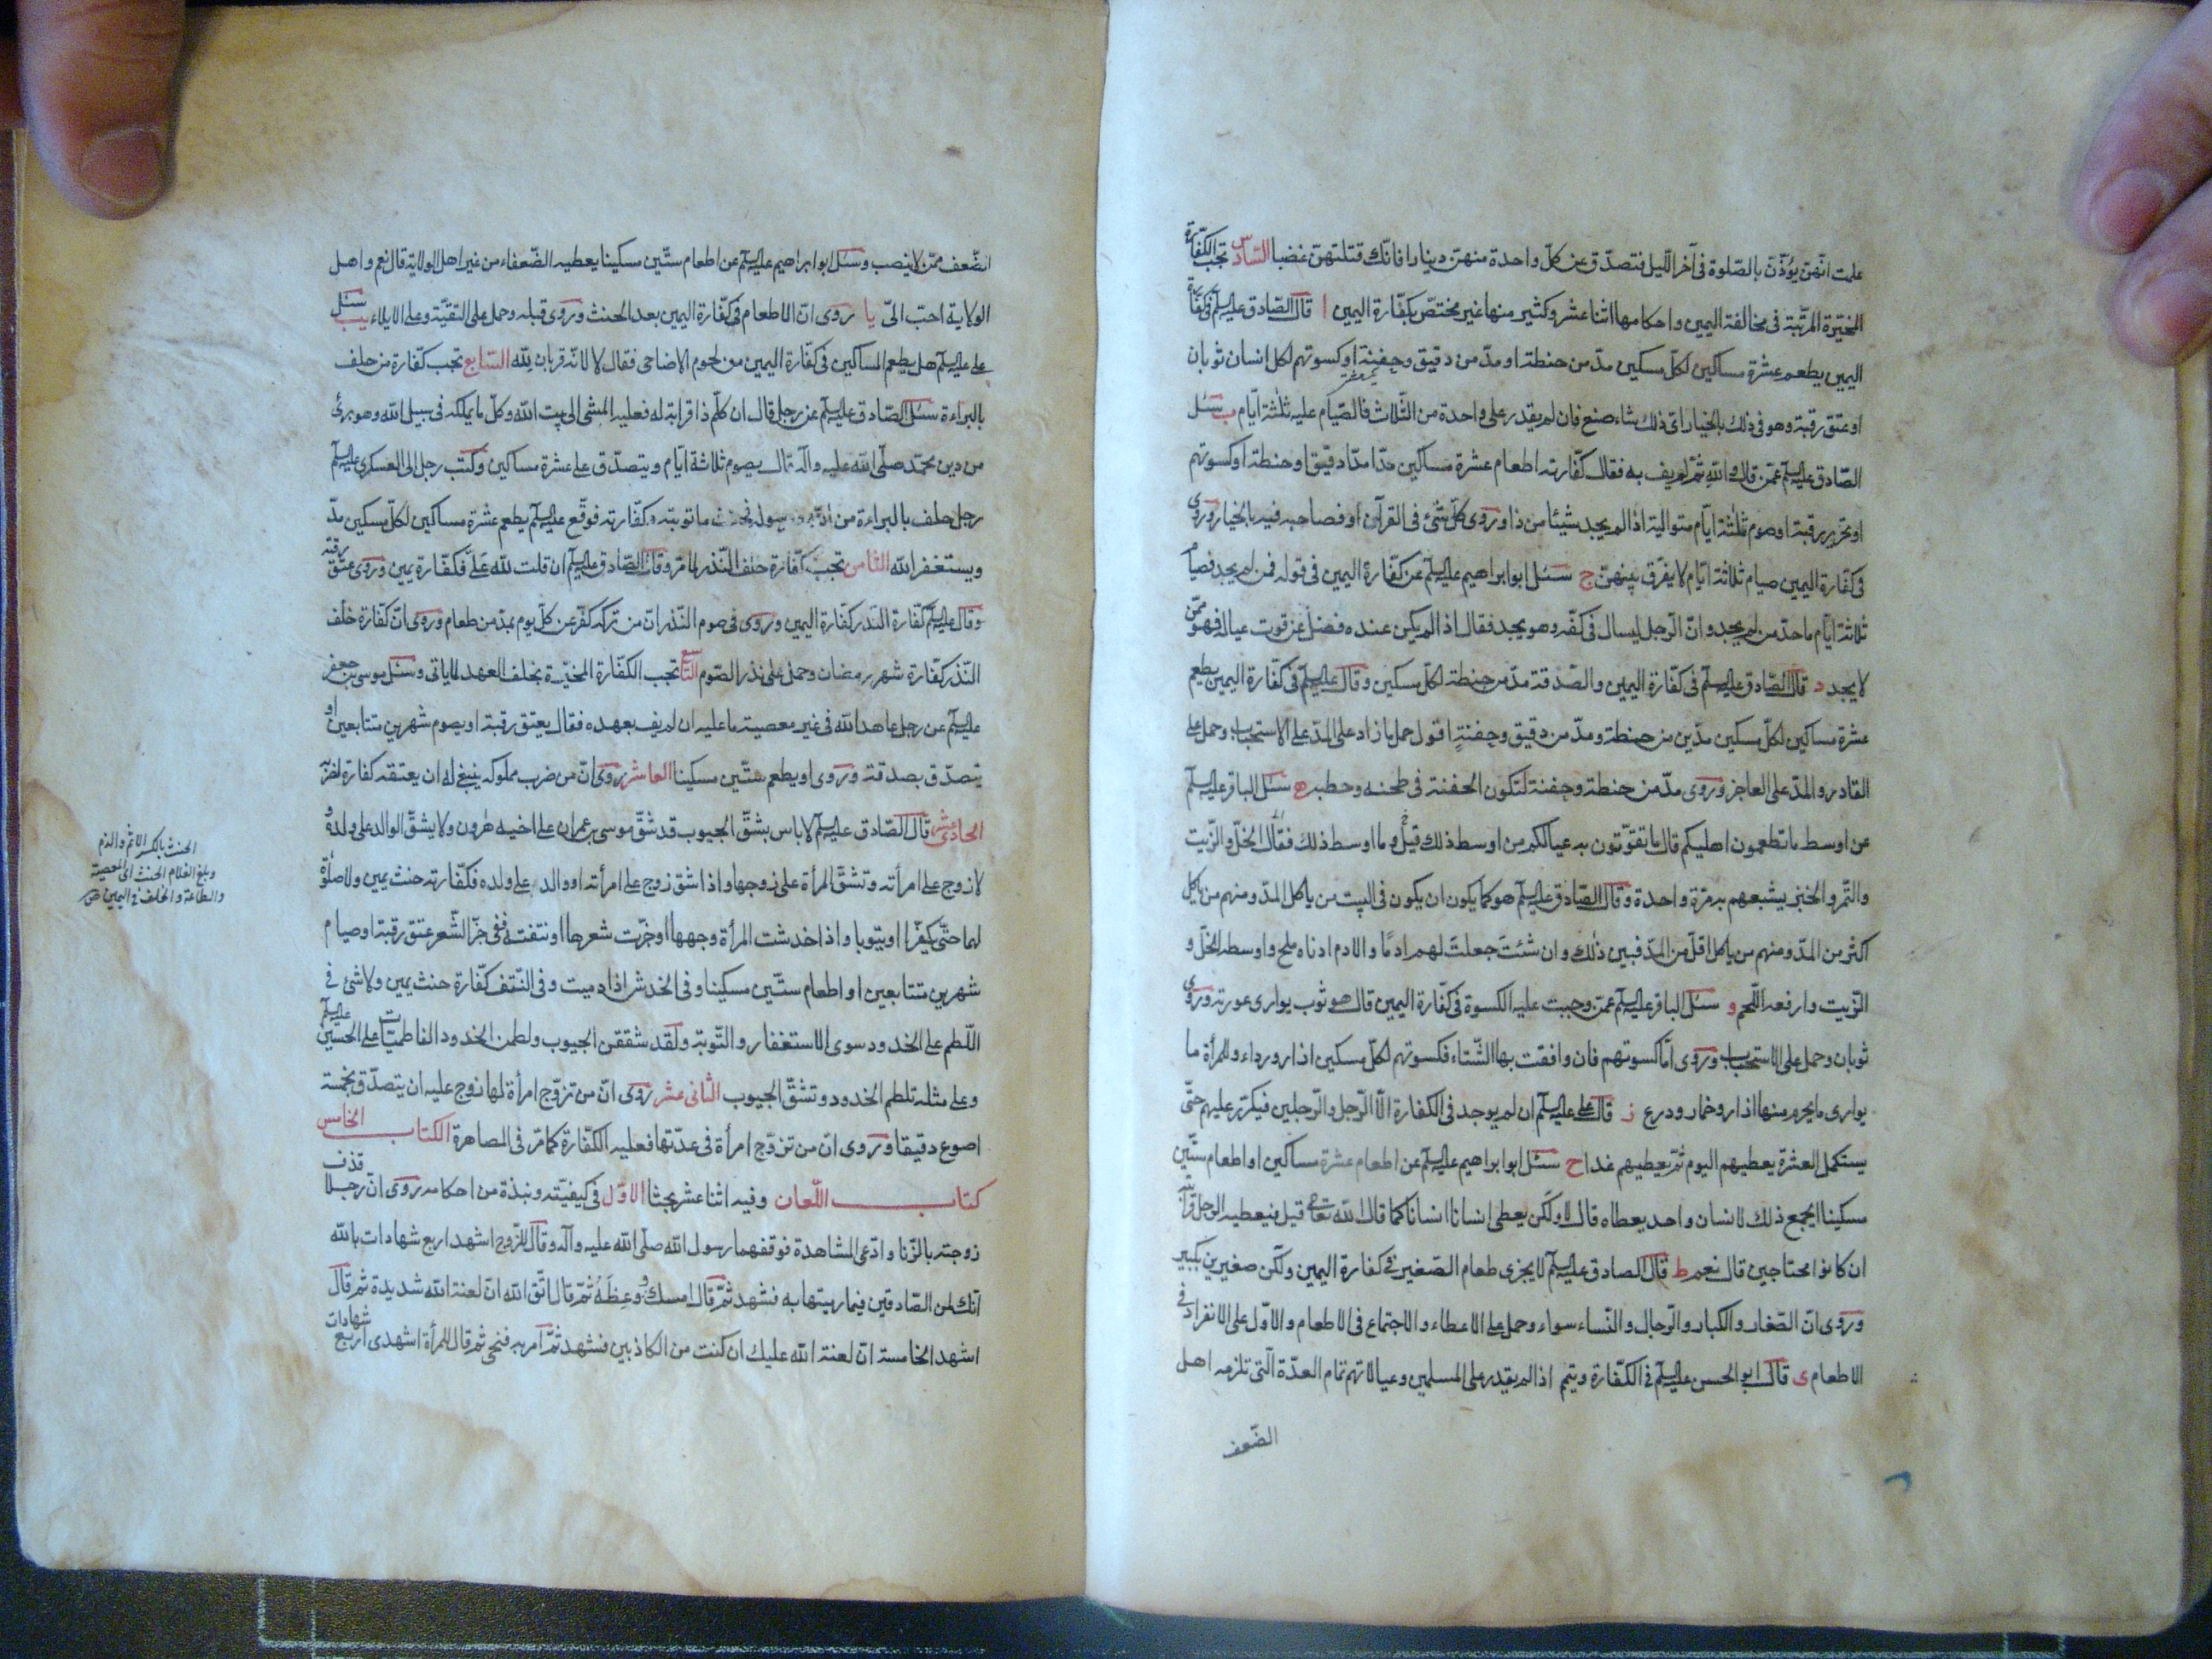 علمت انّهنّ يؤذّن بالصّلوة فى آخر اللّيل فتصدّق عن كلّ واحدة منهنّ دينارا فانّك قتلتهنّ غضبا السّادس تجب الكفّارة
المخيّرة المرتّبة فى مخالفة اليمين واحكامها اثنا عشر وكثير منها غير مختصّ بكفّارة اليمين ا قال الصّادق عليه السلم فى كفّارة
اليمين يطعم عشرة مساكين لكلّ مسكين مدّ من حنطة او مدّ من دقيق وحفنة او كسوتهم لكل انسان ثوبان
او عتق رقبة وهو فى ذلك بالخيار اىّ ذلك شاء صنع فان لم يقدر على واحدة من الثّلاث فالصّيام عليه ثلثة ايّام ب سئل
الصّادق عليه السلم عمّن قال والله ثمّ لم يف به فقال كفّارته اطعام عشرة مساكين مدّا مدّا دقيق او حنطة او كسوتهم
او تحرير رقبة او صوم ثلثة ايّام متوالية اذا لم يجد شيئا من ذا وروى كلّ شئ فى القرآن او فصاحبه فيه بالخيار وروى
فى كفّارة اليمين صيام ثلاثة ايّام لا يفرّق بينهنّ ج سئل ابو ابراهيم عليه السلم عن كفّارة اليمين فى قوله فمن لم يجد فصيام
ثلاثة ايّام ما حدّ من لم يجد وانّ الرّجل ليسال فى كفّه وهو يجد فقال اذا لم يكن عنده فضل عن قوت عياله فهو ممّن
لا يجد د قال الصّادق عليه السلم فى كفّارة اليمين والصّدقة مدّ من حنطة لكل مسكين وقال عليه السلم فى كفّارة اليمين يطعم
عشرة مساكين لكلّ مسكين مدّين من حنطة ومدّ من دقيق وحفنة اقول حمل ما زاد على المدّ على الاستحباب وحمل على
القادر والمدّ على العاجز وروى مدّ من حنطة وحفنة لتكون الحفنة فى طحنه وحطبه ه سئل الباقر عليه السلم
عن اوسط ما تطعمون اهليكم قال ما تقوّتون به عيالكم من اوسط ذلك قيل وما اوسط ذلك فقال الخلّ والزّيت
والتّمر والخبز يشبعهم به مرّة واحدة وقال الصّادق عليه السلم هو كما يكون ان يكون فى البيت من ياكل المدّ ومنهم من ياكل
اكثر من المدّ ومنهم من ياكل اقلّ من المدّ فبين ذلك وان شئت جعلت لهم ادمًا والادم ادناه ملح واوسطه الخلّ و
الزّيت وارفعه اللّحم و سئل الباقر عليه السلم عمّن وجبت عليه الكسوة فى كفّارة اليمين قال هو ثوب يوارى عورته وروى
ثوبان وحمل على الاستحباب وروى امّا كسوتهم فان وافقت بها الشّتاء فكسوتهم لكلّ مسكين ازار ورداء وللمرأة ما
يوارى ما يحرم منها ازار وخمار ودرع ز قال على عليه السلم ان لم يوجد فى الكفارة الّا الرّجل والرّجلين فيكرّر عليهم حتّى
يستكمل العشرة يعطيهم اليوم ثمّ يعطيهم غدا ح سئل ابو ابراهيم عليه السلم عن اطعام عشرة مساكين او اطعام ستّين
مسكينا ايجمع ذلك لانسان واحد يعطاه قال لا ولكن يعطى انسانا انسانا كما قال الله تعالى قيل فيعطيه الرجل قرابته
ان كانوا محتاجين قال نعم ط قال الصادق عليه السلم لا يجزى طعام الصّغير فى كفارة اليمين ولكن صغيرين بكبير
وروى انّ الصّغار والكبار والرّجال والنّساء سواء وحمل على الاعطاء والاجتماع فى الاطعام والاوّل على الانفراد فى
الاطعام ى قال ابو الحسن عليه السلم فى الكفّارة ويتم اذا لم يقدر على المسلمين وعيالاتهم تمام العدّة الّتى تلزمه اهل
الضّعف
الضّعف ممّن لا ينصب وسئل ابو ابراهيم عليه السلم عن اطعام ستّين مسكينا يعطيه الضّعفاء من غير اهل الولاية قال نعم واهل
الولاية احبّ الىّ يا روى انّ الاطعام فى كفّارة اليمين بعد الحنث وروى قبله وحمل على التقيّة وعلى الايلاء يب سئل
على عليه السلم هل يطعم المساكين فى كفّارة اليمين من لحوم الاضاحى فقال لا لانّه قربان لله السّابع تجب كفّارة من حلف
بالبراءة سئل الصّادق عليه السلم عن رجل قال ان كلّم ذا قرابة له فعليه المشى الى بيت الله وكلّ ما يملكه فى سبيل الله وهو برئ
من دين محمّد صلّى الله عليه وآله قال يصوم ثلاثة ايّام ويتصدّق على عشرة مساكين وكتب رجل الى العسكرى عليه السلم
رجل حلف بالبراءة من الله ورسوله فحنث ما توبته وكفّارته فوقّع عليه السلم يطعم عشرة مساكين لكلّ مسكين مدّ
ويستغفر الله الثّامن تجب كفّارة خلف النّذر لما مرّ وقال الصّادق عليه السلم ان قلت لله علىّ فكفّارة يمين وروى عتق رقبة
وقال عليه السلم كفّارة النّذر كفّارة اليمين وروى فى صوم النّذر انّ من تركه كفّر عن كلّ يوم بمدّ من طعام وروى انّ كفّارة خلف
النّذر كفّارة شهر رمضان وحمل على نذر الصّوم التّاسع تجب الكفّارة المخيّرة بخلف العهد لما ياتى وسئل موسى بن جعفر
عليه السلم عن رجل عاهد الله فى غير معصية ما عليه ان لم يف بعهده فقال يعتق رقبة او يصوم شهرين متتابعين او
يتصدّق بصدقة وروى او يطعم ستّين مسكينا العاشر روى انّ من ضرب مملوكه ينبغى له ان يعتقه كفارة لضربه
الحادى عشر قال الصّادق عليه السلم لا باس بشقّ الجيوب قد شقّ موسى بن عمران على اخيه هرون ولا يشقّ الوالد على ولده و
لا زوج على امرأته وتشقّ المرأة على زوجها واذا شقّ زوج على امرأته او والد على ولده فكفّارته حنث يمين ولا صلوة
لهما حتّى يكفّرا او يتوبا واذا خدشت المرأة وجهها او جزّت شعرها او نتفته ففى جزّ الشّعر عتق رقبة او صيام
شهرين متتابعين او اطعام ستّين مسكينا وفى الخدش اذا دميت وفى النّتف كفّارة حنث يمين ولا شئ فى
اللّطم على الخدود سوى الاستغفار والتّوبة ولقد شققن الجيوب ولطمن الخدود الفاطميّات على الحسين عليه السلم
وعلى مثله تلطم الخدود وتشقّ الجيوب الثّانى عشر روى انّ من تزوّج امرأة لها زوج عليه ان يتصدّق بخمسة
اصوع دقيقا وروى انّ من تزوّج امرأة فى عدّتها فعليه الكفّارة كما مرّ فى المصاهرة الكتاب الخامس
كتاب اللّعان وفيه اثنا عشر بحثا الاوّل فى كيفيّته ونبذة من احكامه روى انّ رجلا قذف
زوجته بالزّنا وادّعى المشاهدة فوقفهما رسول الله صلّى الله عليه وآله وقال للزّوج اشهد اربع شهادات بالله
انّك لمن الصّادقين فيما رميتها به فشهد ثمّ قال امسك ووعظه ثمّ قال اتّق الله انّ لعنة الله شديدة ثم قال
اشهد الخامسة انّ لعنة الله عليك ان كنت من الكاذبين فشهد ثمّ امر به فنحّى ثم قال للمرأة اشهدى اربع شهادات
الحنث بالكسر الاثم والذم
وبلغ الغلام الحنث اى المعصية
والطاعة والخلف فى اليمين